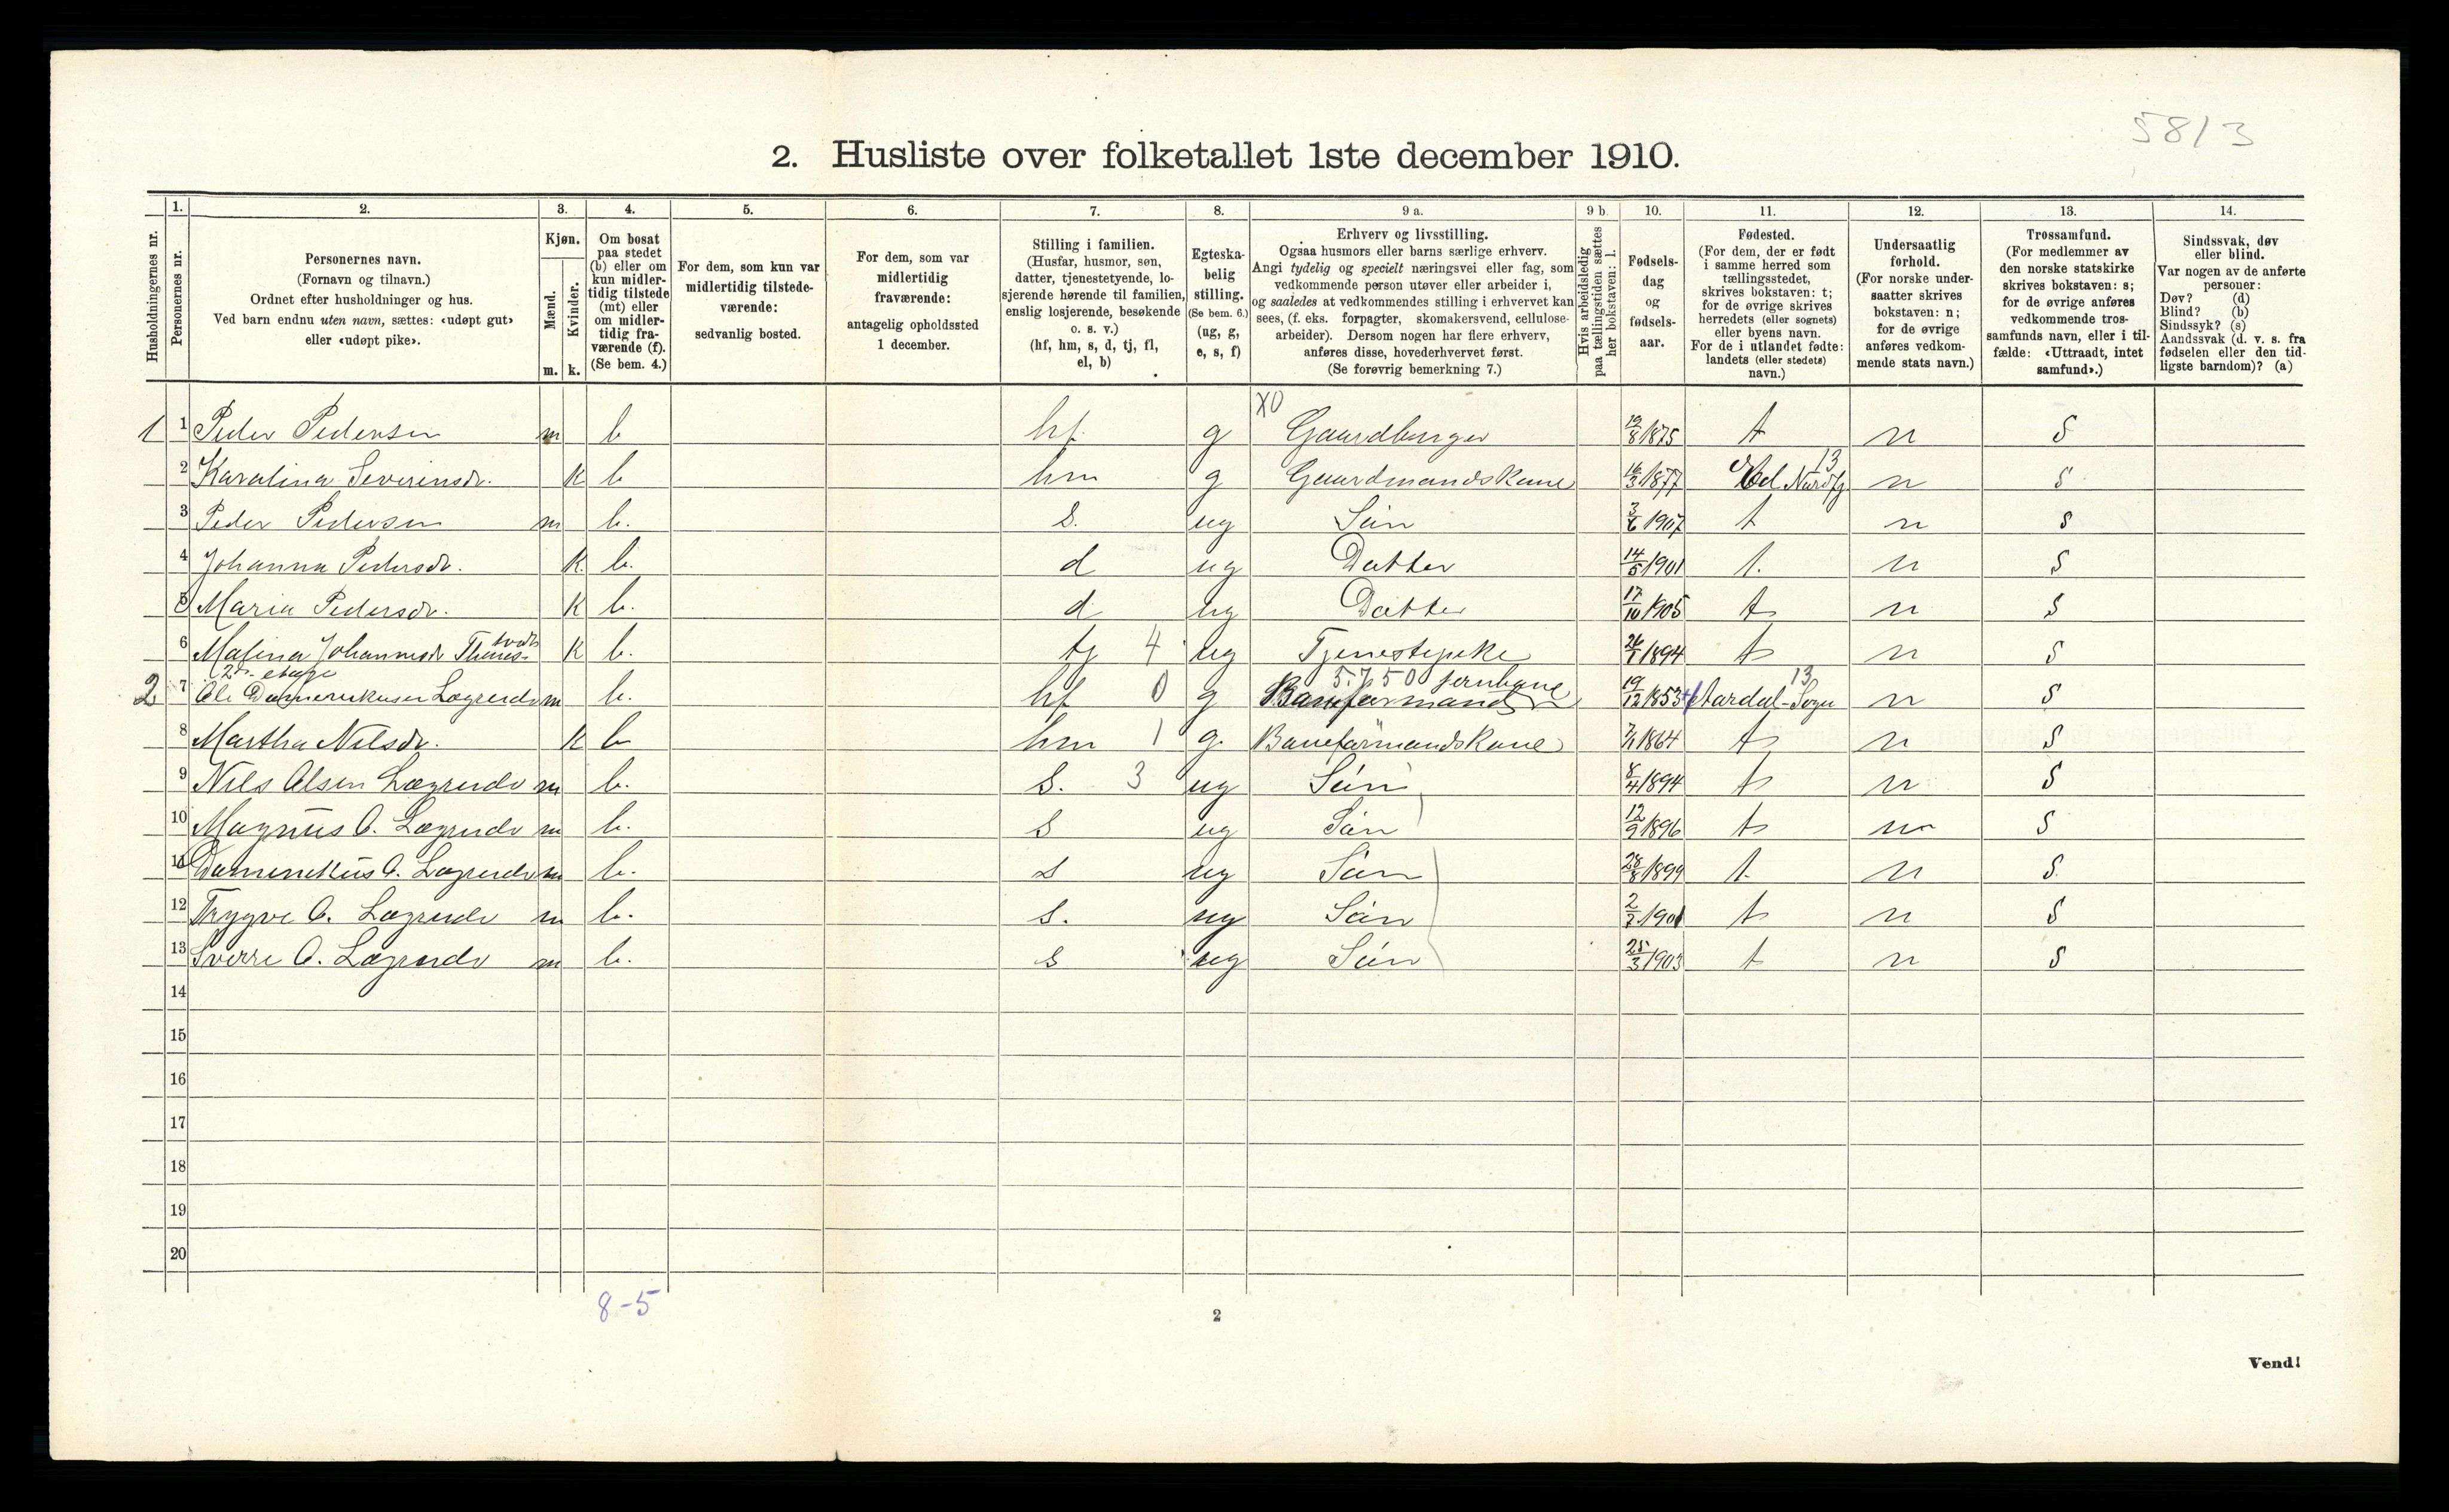 58/3
2. Husliste over folketallet 1ste december 1910.
1. 2. 3. 4. 5. 6. 7. 8. 9 a. 9 b. 10. 11. 12. 13. 14.
Husholdningernes nr.
Personernes nr.
Personernes navn.
(Fornavn og tilnavn.)
Ordnet efter husholdninger og hus.
Ved barn endnu uten navn, sættes: «udøpt gut»
eller «udøpt pike».
Kjøn.
Mænd.
Kvinder.
m. k.
Om bosat
paa stedet
(b) eller om
kun midler-
tidig tilstede
(mt) eller
om midler-
tidig fra-
værende (f).
(Se bem. 4.)
For dem, som kun var
midlertidig tilstede-
værende:
sedvanlig bosted.
For dem, som var
midlertidig
fraværende:
antagelig opholdssted
1 december.
Stilling i familien.
(Husfar, husmor, søn,
datter, tjenestetyende, lo-
sjerende hørende til familien,
enslig losjerende, besøkende
o. s. v.)
(hf, hm, s, d, tj, fl,
el, b)
Egteska-
belig
stilling.
(Se bem. 6.)
(ug, g,
e, s, f)
Erhverv og livsstilling.
Ogsaa husmors eller barns særlige erhverv.
Angi tydelig og specielt næringsvei eller fag, som
vedkommende person utøver eller arbeider i,
og saaledes at vedkommendes stilling i erhvervet kan
sees, (f. eks. forpagter, skomakersvend, cellulose-
arbeider). Dersom nogen har flere erhverv,
anføres disse, hovederhvervet først.
(Se forøvrig bemerkning 7.)
Hvis arbeidsledig
paa tællingstiden sættes
her bokstaven: l.
Fødsels-
dag
og
fødsels-
aar.
Fødested.
(For dem, der er født
i samme herred som
tællingsstedet,
skrives bokstaven: t;
for de øvrige skrives
herredets (eller sognets)
eller byens navn.
For de i utlandet fødte:
landets (eller stedets)
navn.)
Undersaatlig
forhold.
(For norske under-
saatter skrives
bokstaven: n;
for de øvrige
anføres vedkom-
mende stats navn.)
Trossamfund.
(For medlemmer av
den norske statskirke
skrives bokstaven: s;
for de øvrige anføres
vedkommende tros-
samfunds navn, eller i til-
fælde: «Uttraadt, intet
samfund».)
Sindssvak, døv
eller blind.
Var nogen av de anførte
personer:
Døv? (d)
Blind? (b)
Sindssyk? (s)
Aandssvak (d. v. s. fra
fødselen eller den tid-
ligste barndom)? (a)
X0
1 1 Peder Pedersen m b hf g Gaardbruger 19/8 1875 t n S
13
2 Karolina Severinsdr. K b hm g Gaardmandskone 16/3 1877 Eid Nordfj n S
3 Peder Pedersen m b. s. ug Sön 3/6 1907 t n S
4 Johanna Pedersdr. K. b. d ug Datter 14/5 1901 t. n S
5 Maria Pedersdr. K b. d ug Datter 17/10 1905 t n S
6 Malina Johannesdr K b. tj 4 ug Tjenestepike 26/1 1894 t n S
2den etage
5.750 Jernbane 13
2 7 Ole Lægreid m b. hf 0 g Baneformand 19/12 1853 Aardal-Sogn n S
8 Martha Nilsdr. K b hm 1 g. Baneformandskone 7/1 1864 t n S
9 Nils Olsen Lægreid m b. s. 3 ug Sön 8/4 1894 t n S
10 Magnus O. Lægreid m b. s ug Sön 12/9 1896 t n S
11 Daminikus O. Lægreid m b. s ug Sön 28/8 1899 t. n S.
12 Trygve O. Lægreid m b. s. ug Sön 2/7 1901 t n S
13 Sverre O. Lægreid m b. s ug Sön 25/3 1903 t n S
14
15
16
17
18
19
20
8-5
2
Vend!